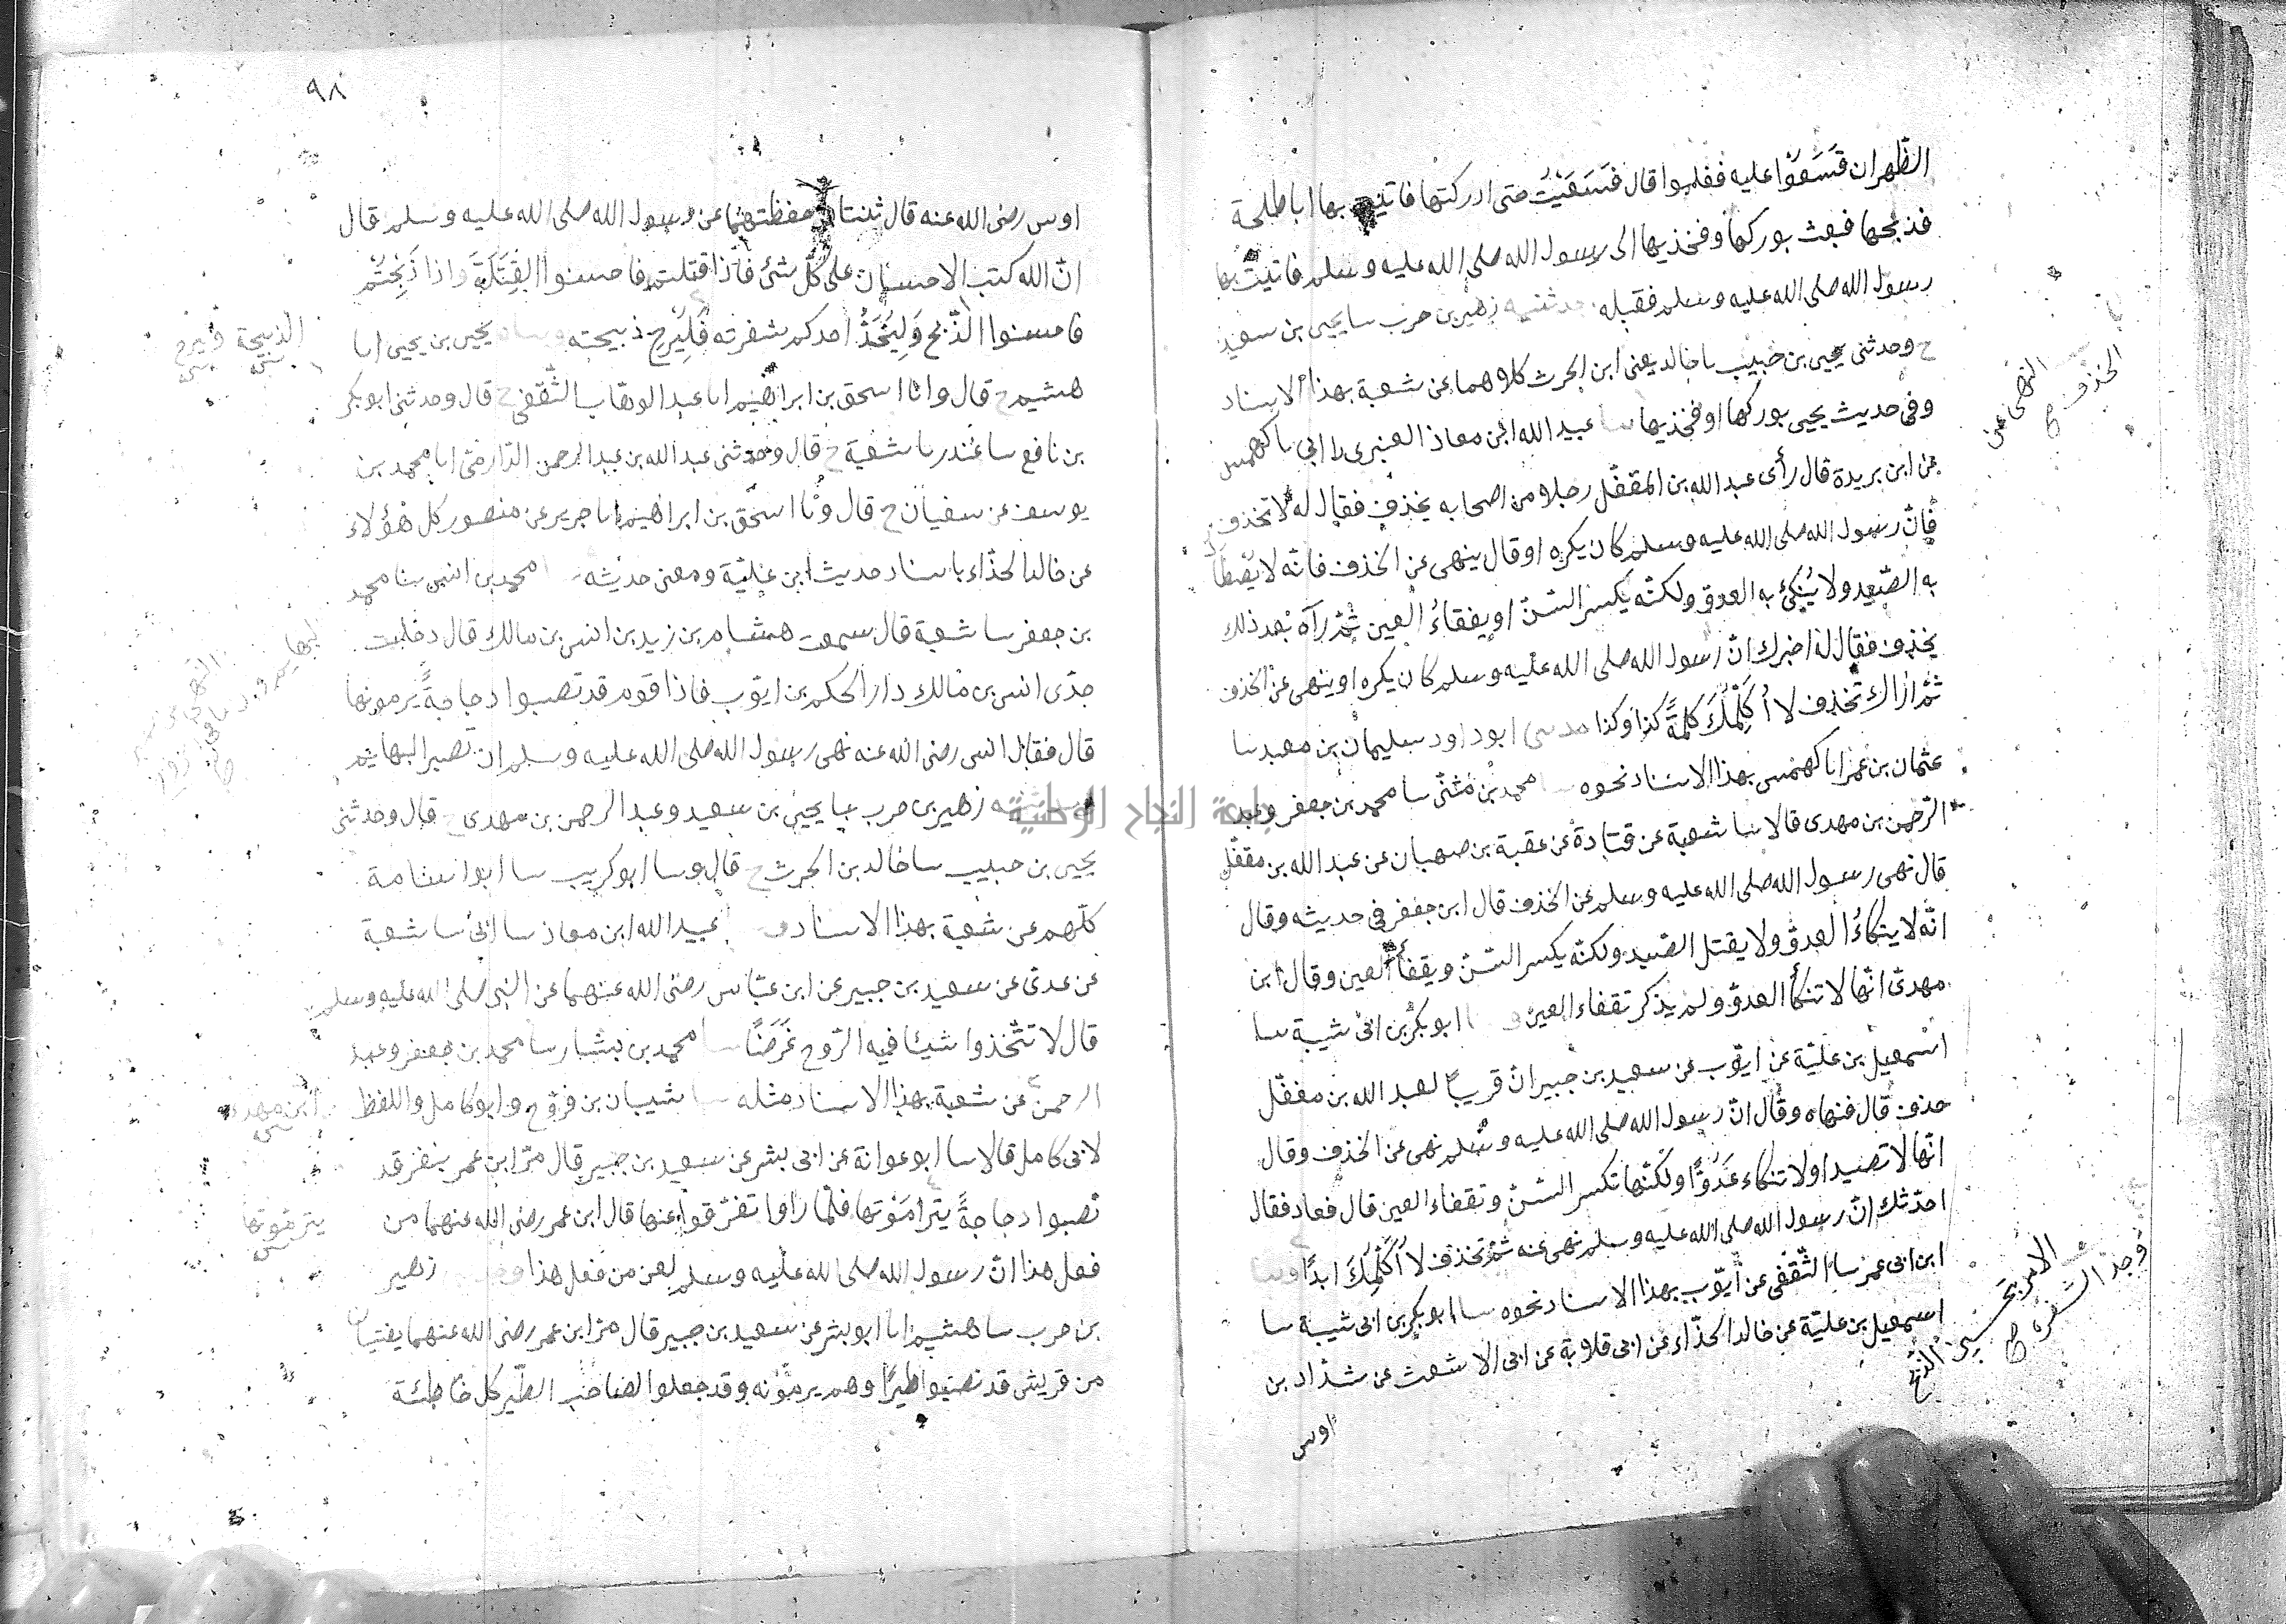 الظهران فَسَعَوْا عليه فغلبوا قال فَسَعَيْتُ حتى ادركتها فاتيت بها ابا طلحة
فذبحها فبعث بوركها وفخذيها الى رسول الله صلى الله عليه وسلم فاتيت بها
رسول الله صلى الله عليه وسلم فقبله حدثنيه زهير بن حرب سا يحيى بن سعيد
ح وحدثنى يحيى بن حبيب سا خالد يعنى ابن الحرث كلاهما عن شعبة بهذا الاسناد
وفى حديث يحيى بوركها او فخذيها سا عبيد الله ابن معاذ العنبرى سا ابى سا كهمس
عن ابن بريدة قال رأى عبد الله بن المغفّل رجلا من اصحابه يخذف فقال له لا تخذف
فانّ رسول الله صلى الله عليه وسلم كان يكره او قال ينهى عن الخذف فانّه لا يصطاد
به الصّيد ولا يُنكئ به العدوّ ولكنّه يكسر السّنّ او يفقاءُ العين ثمّ رآه بعد ذلك
يخذف فقال له اخبرك انّ رسول الله صلى الله عليه وسلم كان يكره او ينهى عن الخذف
ثمّ اراك تخذف لا أُكَلِّمُكَ كلمةً كذا وكذا حدثنى ابو داود سليمان بن معبد سا
عثمان بن عمر انا كهمس بهذا الاسناد نحوه سا محمد بن مثنّى سا محمد بن جعفر وعبد
الرّحمن بن مهدى قالا سا شعبة عن قتادة عن عقبة بن صهبان عن عبد الله بن مغفّل
قال نهى رسول الله صلى الله عليه وسلم عن الخذف قال ابن جعفر فى حديثه وقال
انّه لا ينكاءُ العدوّ ولا يقتل الصّيد ولكنّه يكسر السّنّ ويفقأ العين وقال ابن
مهدىّ انّها لا تنكأ العدوّ ولم يذكر تفقاء العين وسا ابو بكر بن ابى شيبة سا
اسمعيل بن عليّة عن ايّوب عن سعيد بن جبير انّ قريبًا لعبد الله بن مغفّل
خذف قال فنهاه وقال انّ رسول الله صلى الله عليه وسلم نهى عن الخذف وقال
انّها لا تصيد او لا تنكاء عَدُوًّا ولكنّها تكسر السّنّ وتفقاء العين قال فعاد فقال
احدّثك انّ رسول الله صلى الله عليه وسلم نهى عنه ثمّ تخذف لا أُكَلِّمُكَ ابدًا وسا
ابن ابى عمر سا الثّقفى عن ايّوب بهذا الاسناد نحوه سا ابو بكر بن ابى شيبة سا
اسمعيل بن عليّة عن خالد الحذّاء عن ابى قلابة عن ابى الاشعث عن شدّاد بن
اوس
النهى عن
الخذف
الامر بحسن الذبح
وحد الشفره
٩٨
اوس رضى الله عنه قال ثنتان حفظتهما عن رسول الله صلى الله عليه وسلم قال
انّ الله كتب الاحسان على كلّ شئ فاذا قتلتم فاحسنوا القِتْلَةَ واذا ذَبَحْتُمْ
فاحسنوا الذّبح وَلْيُحِدّ احدكم شفرته فَلْيُرِحْ ذبيحته وسا يحيى بن يحيى انا
هشيم ح قال وانا اسحق بن ابراهيم انا عبد الوهاب الثّقفى ح قال وحدثنى ابو بكر
بن نافع سا غندر سا شعبة ح قال وحدثنى عبد الله بن عبد الرحمن الدّارمىّ انا محمد بن
يوسف عن سفيان ح قال ونا اسحق بن ابراهيم انا جرير عن منصور كل هؤلاء
عن خالد الحذّاء باسناد حديث ابن عليّة ومعنى حديثه محمد بن المثنى سا محمد
بن جعفر سا شعبة قال سمعت هشام بن زيد بن انس بن مالك قال دخلت
جدّى انس بن مالك دار الحكم بن ايّوب فاذا قوم قد نصبوا دجاجةً يرمونها
قال فقال انس رضى الله عنه نهى رسول الله صلى الله عليه وسلم ان تصبر البهايم
وحدثنيه زهير بن حرب سا يحيى بن سعيد وعبد الرحمن بن مهدى ح قال وحدثنى
يحيى بن حبيب سا خالد بن الحرث ح قال وسا ابو كريب سا ابو اسامة
كلّهم عن شعبة بهذا الاسناد وسا عبيد الله ابن معاذ سا ابى سا شعبة
عن عدىّ عن سعيد بن جبير عن ابن عبّاس رضى الله عنهما عن النبى صلى الله عليه وسلم
قال لا تتّخذوا شيئا فيه الرّوح غَرَضًا سا محمد بن بشار سا محمد بن جعفر وعبد
الرحمن عن شعبة بهذا الاسناد مثله سا شيبان بن فرّوخ وابو كامل واللفظ
لابى كامل قالا سا ابو عوانة عن ابى بشر عن سعيد بن جبير قال مرّ ابن عمر بنفر قد
نصبوا دجاجةً يترامَوْنها فلمّا راوا تفرّقوا عنها قال ابن عمر رضى الله عنهما من
فعل هذا انّ رسول الله صلى الله عليه وسلم لعن من فعل هذا زهير
بن حرب سا هشيم انا ابو بشر عن سعيد بن جبير قال مرّ ابن عمر رضى الله عنهما بفتيان
من قريش قد نصبوا طيرًا وهم يرمونه وقد جعلوا لصاحب الطّير كل خاطئة
الذبيحة وليرح
ابن مهدى
يترمّونها
جامعة النجاح الوطنية